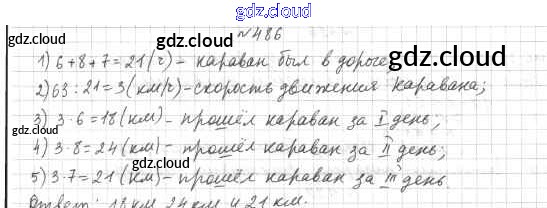 gdz.cloud
№486
gdz.cloud
gdz.cloud
1) 6+8+7=21(ч)- караван был в дороге;
gdz.cloud
2) 63:21=3(км/ч)-скорость движения каравана;
gdz.cloud
3) 3·6=18(км)- прошёл караван за I день;
gdz.cloud
4) 3·8=24(км)- прошёл караван за II день;
gdz.cloud
5) 3·7=21(км)- прошёл караван за III день.
Ответ: 18 км, 24 км и 21 км.